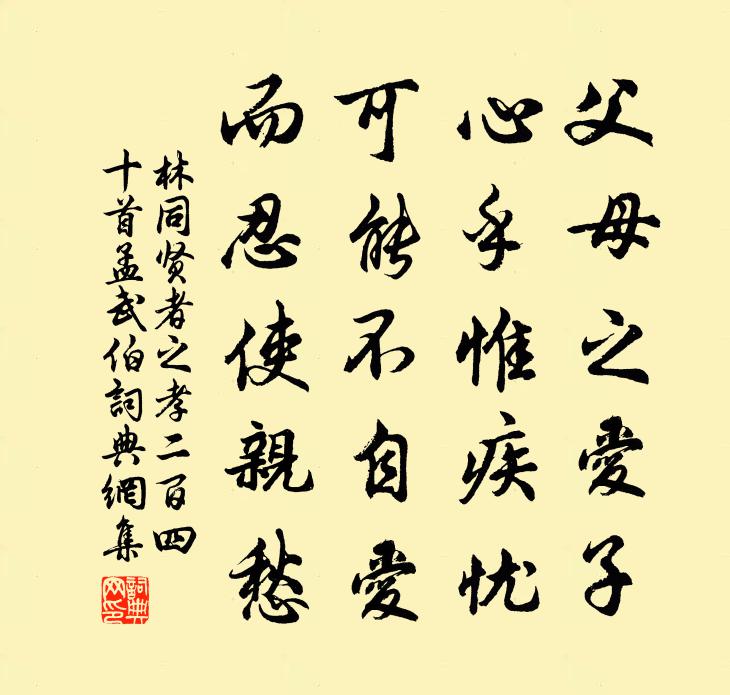 父母之愛子
心乎惟疾忧
可能不自愛
而忍使親愁
林同贤者之孝二百四
十首孟武伯詞典網集
詞典网印